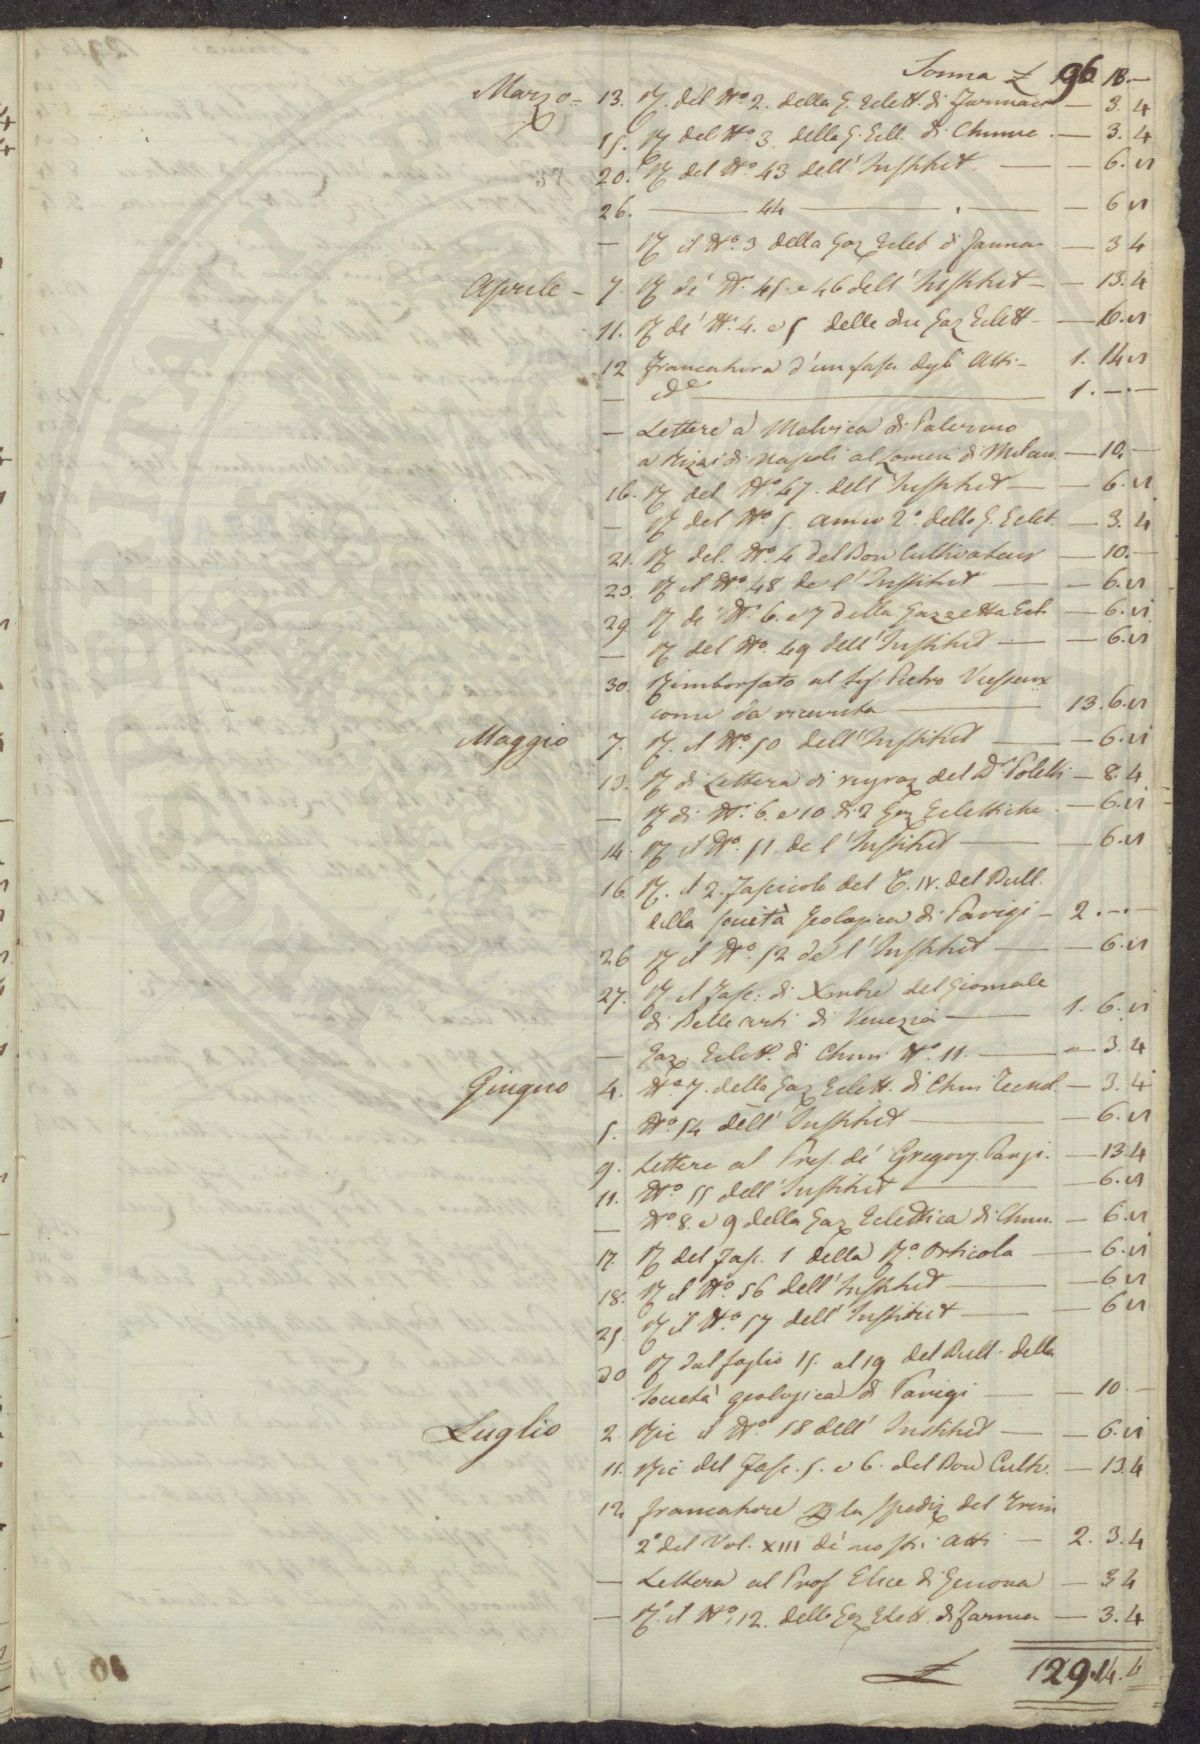 Somma £ 96. 18.—
Marzo = 13. R. del N.º 2. della G. Eclett. di Farmacia — 3. 4
15. R. del N.º 3. della G. Ecll. di Chimie. — 3. 4
20. R. del N.º 43 dell' Institut. — — 6. VI
26. — 44 — — 6 VI
— R. il N.º 3 della Gaz Eclet di Farma — 3 4
Aprile — 7. R. di N.i 45. e 46 dell' Institut — — 13. 4
11. R. de' N.i 4. e 5 delle due Gaz Eclett — 16. VI
12 francatura d'un fasc. degli Atti — 1. 14 VI
— d.e — 1. —.—
— Lettere a Malvica di Palermo
a Rizzi di Napoli al Lomeni di Milan. — 10. —
16. R. del N.º 47. dell' Institut — — 6. VI
— R. del N.º 5. anno 2.º della G. Eclet. — 3. 4
21. R. del. N.º 4 del Bon Cultivateur — 10. —
23. R. il N.º 48 de l'Institut — — 6. VI
29 R. di N.i 6. e 7 della Gazzetta Ecl. — 6. VI
— R. del N.º 49 dell' Institut — — 6. VI
30. Rimborsato al Sig. Pietro Viesseux
come da ricevuta — 13. 6. VI
Maggio 7. R. il N.º 50 dell' Institut — — 6. VI
13. R. di Lettera di ringraz del D.r Poletti — 8. 4
— R. di N.i 6. e 10 di 2 Gaz Eclettiche — 6. VI
14. R. il N.º 51. de l'Institut — — 6. VI
16. R. il 2. Fascicolo del T. IV. del Bull.
della società Geologica di Parigi — 2. —.—
26 R. il N.º 52 de l'Institut — — 6. VI
27. R. il Fasc: di Xmbre del Giornale
di Belle arti di Venezia — 1. 6. VI
— Gaz. Eclett. di Chim. N.º 11. — — 3. 4
Giugno 4. N.º 7. della Gaz Eclett. di Chim Tecnol. — 3. 4
5. N.º 54 dell' Institut — — 6. VI
9. Lettere al Prof. de' Gregory Parigi. — 13. 4
11. N.º 55 dell' Institut — — 6. VI
— N.º 8. e 9 della Gaz Eclettica di Chim. — 6. VI
17. R. del Fasc. 1 della R.ª Orticola — 6. VI
18. R. il N.º 56 dell' Institut — — 6 VI
25. R. il N.º 57 dell' Institut — — 6 VI
30 R. dal foglio 15. al 19 del Bull. della
Società geologica di Parigi — — 10. —
Luglio 2. Ric il N.º 58 dell' Institut — — 6. VI
11. Ric del Fasc. 5. e 6. del Bon Cultiv. — 13. 4
12 francature p la spediz del Trim
2.º del Vol. XIII de' nostri Atti — 2. 3. 4
— Lettera al Prof Elice di Genova — 3 4
— R. il N.º 12. della Gaz Eclett. di Farma — 3. 4
£ 129. 14. 4